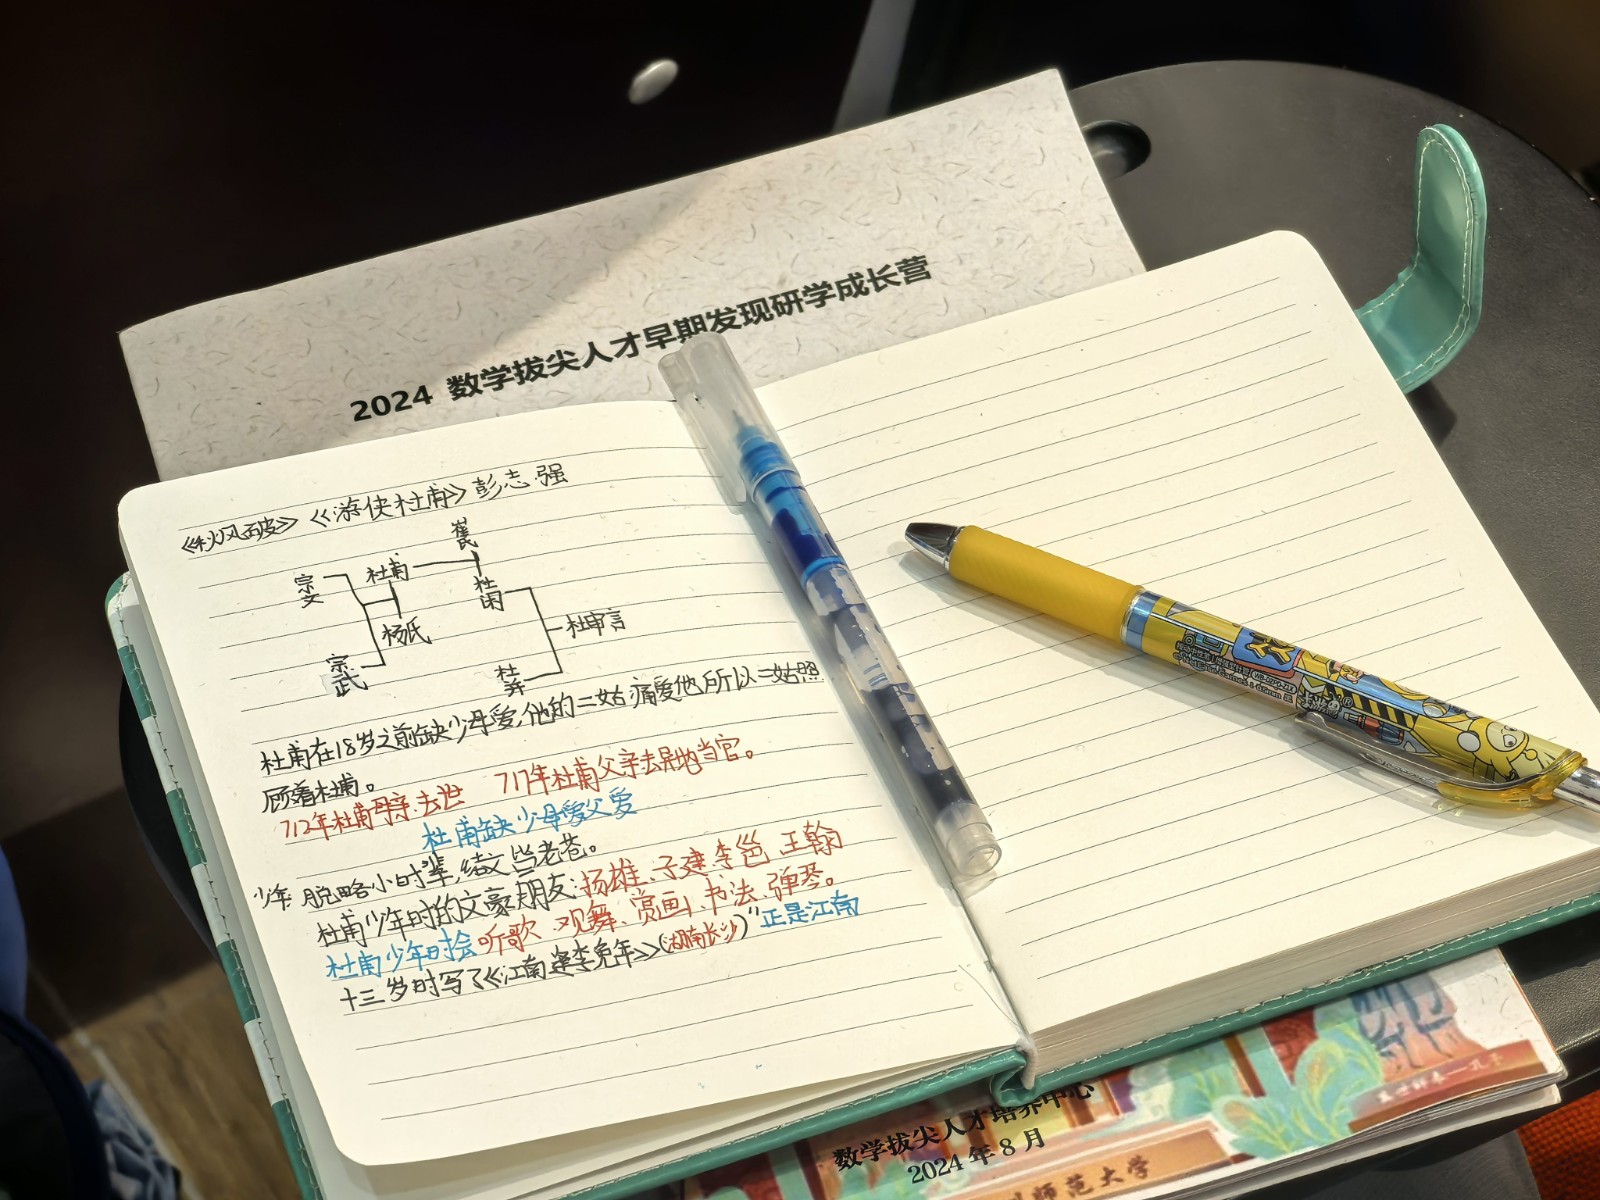 2024 数学拔尖人才早期发现研学成长营
《秋风破》《游侠杜甫》彭志强
崔氏
宗文
杜甫
杜闲
杨氏
杜审言
宗武
杜并
杜甫在18岁之前缺少母爱,他的二姑痛爱他所以二姑照
顾着杜甫。
712年杜甫母亲去世 717年杜甫父亲去异地当官。
杜甫缺少母爱父爱
少年 脱略小时辈,结交皆老苍。
杜甫少年时的文豪朋友:扬雄、子建 李邕 王翰
杜甫少年时会听歌、观舞、赏画、书法、弹琴。
十三岁时写了《江南逢李龟年》(湖南长沙)"正是江南
数学拔尖人才培养中心
2024年8月
师范大学